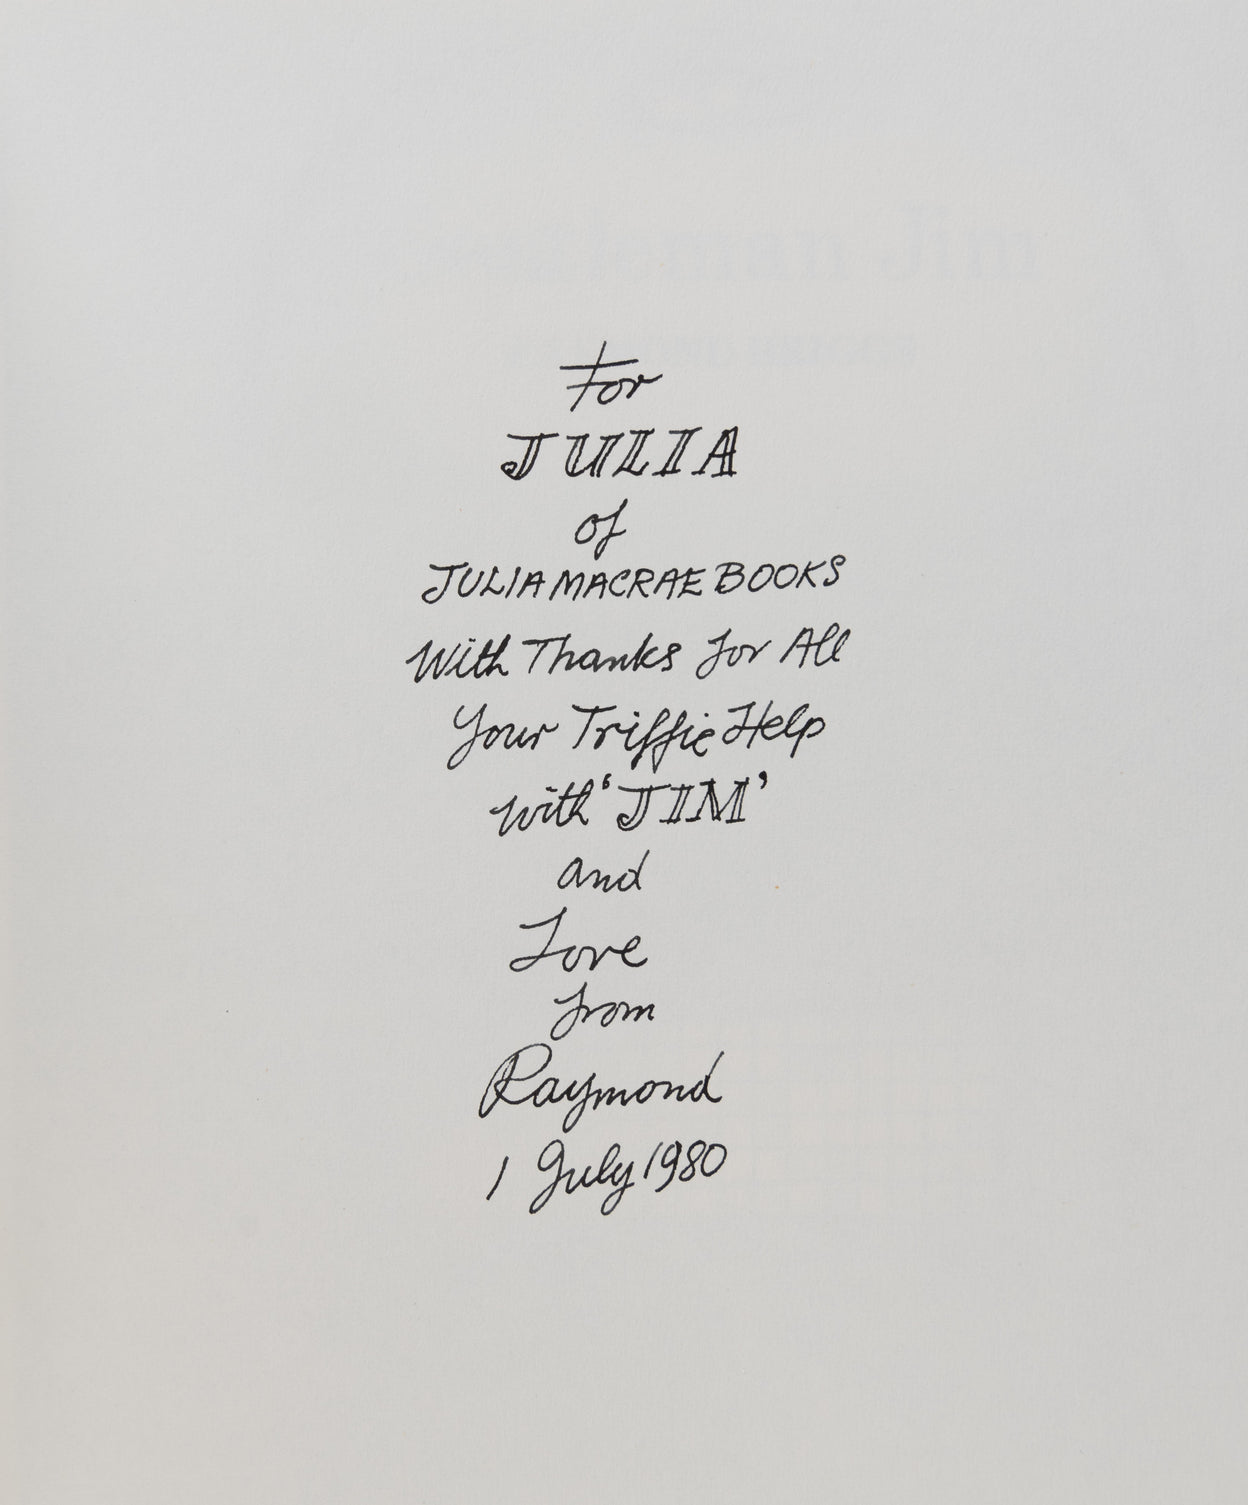 For
JULIA
of
JULIA MACRAE BOOKS
With Thanks for All
Your Triffic Help
with 'JIM'
and
Love
from
Raymond
1 July 1980